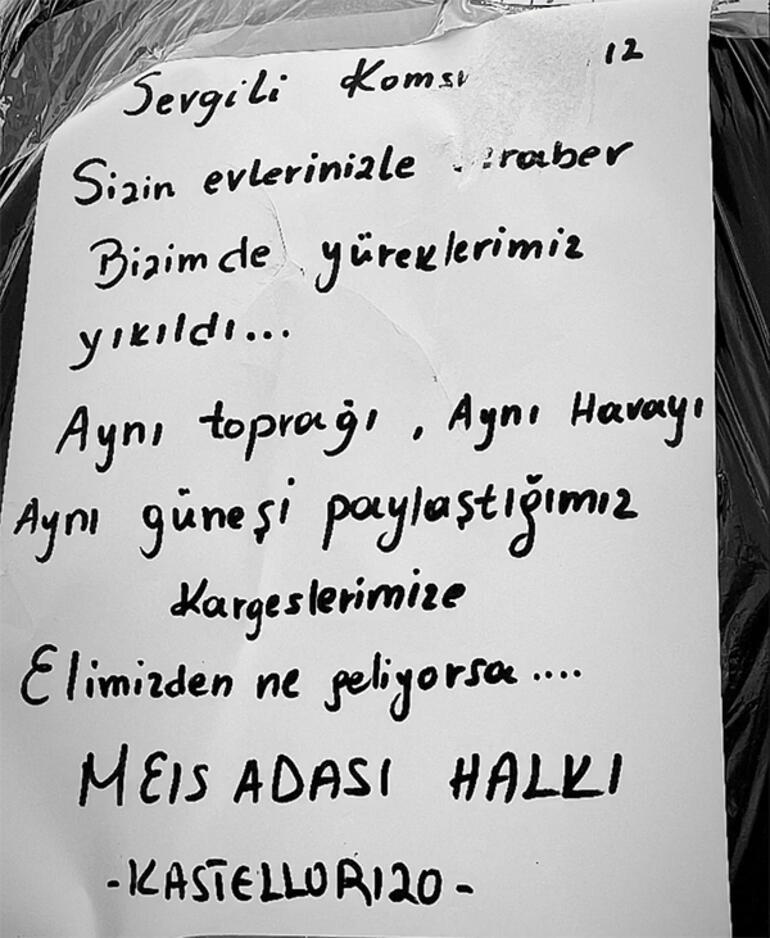 Sevgili Koms 12
Sizin evlerinizle raber
Bizimde yüreklerimiz
yıkıldı...
Aynı toprağı, Aynı Havayı
Aynı güneşi paylaştığımız
Kargeslerimize
Elimizden ne geliyorsa....
MEIS ADASI HALKI
-KASTELLORIZO-